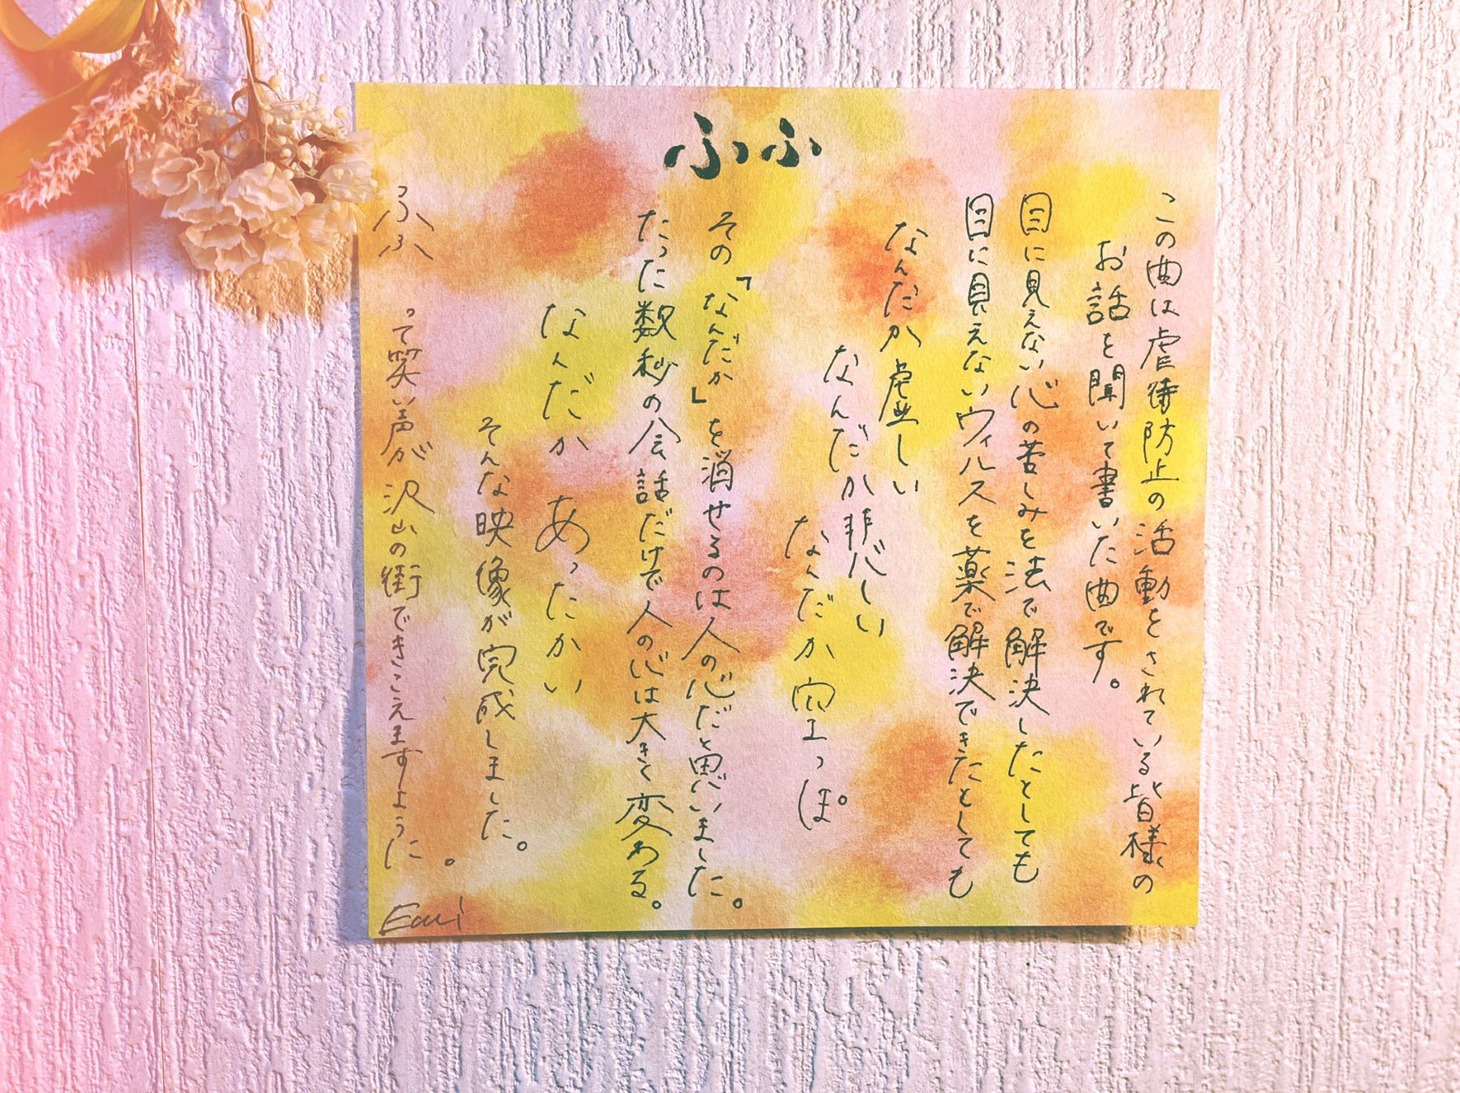 ふふ
この曲は虐待防止の活動をされている皆様の
お話を聞いて書いた曲です。
目に見えない心の苦しみを法で解決したとしても
目に見えないウィルスを薬で解決できたとしても
なんだか虚しい
なんだか悲しい
なんだか空っぽ
その「なんだか」を消せるのは人の心だと思いました。
たった数秒の会話だけで人の心は大きく変わる。
なんだか あったかい
そんな映像が完成しました。
ふふ って笑い声が沢山の街できこえますように。
Emi